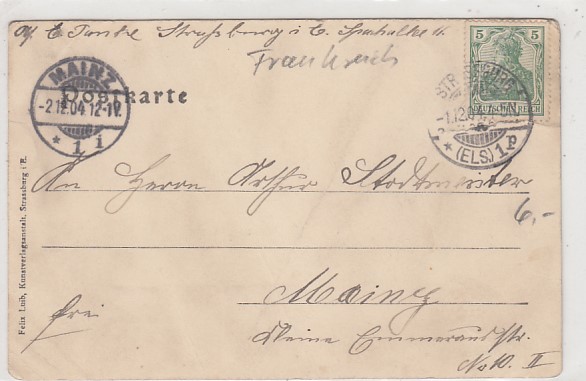 E. Funke Strassburg i E. Sparhalle 11.
Frankreich
5 5
DEUTSCHES REICH
MAINZ
-2.12.04 12-1N.
* 1 i
STRASSBURG
-1.12.04
* (ELS) 1 P
Postkarte
An Herrn Arthur Stadtmeister
6,-
Mainz
frei
Kleine Emmeranstr.
No 10. II
Felix Luib, Kunstverlagsanstalt, Strassburg i. E.